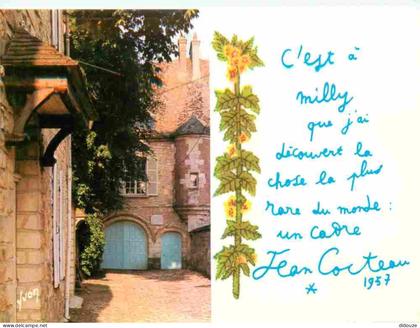 C'est à
milly
que j'ai
découvert la
chose la plus
rare du monde :
un cadre
Jean Cocteau
* 1957
yvon